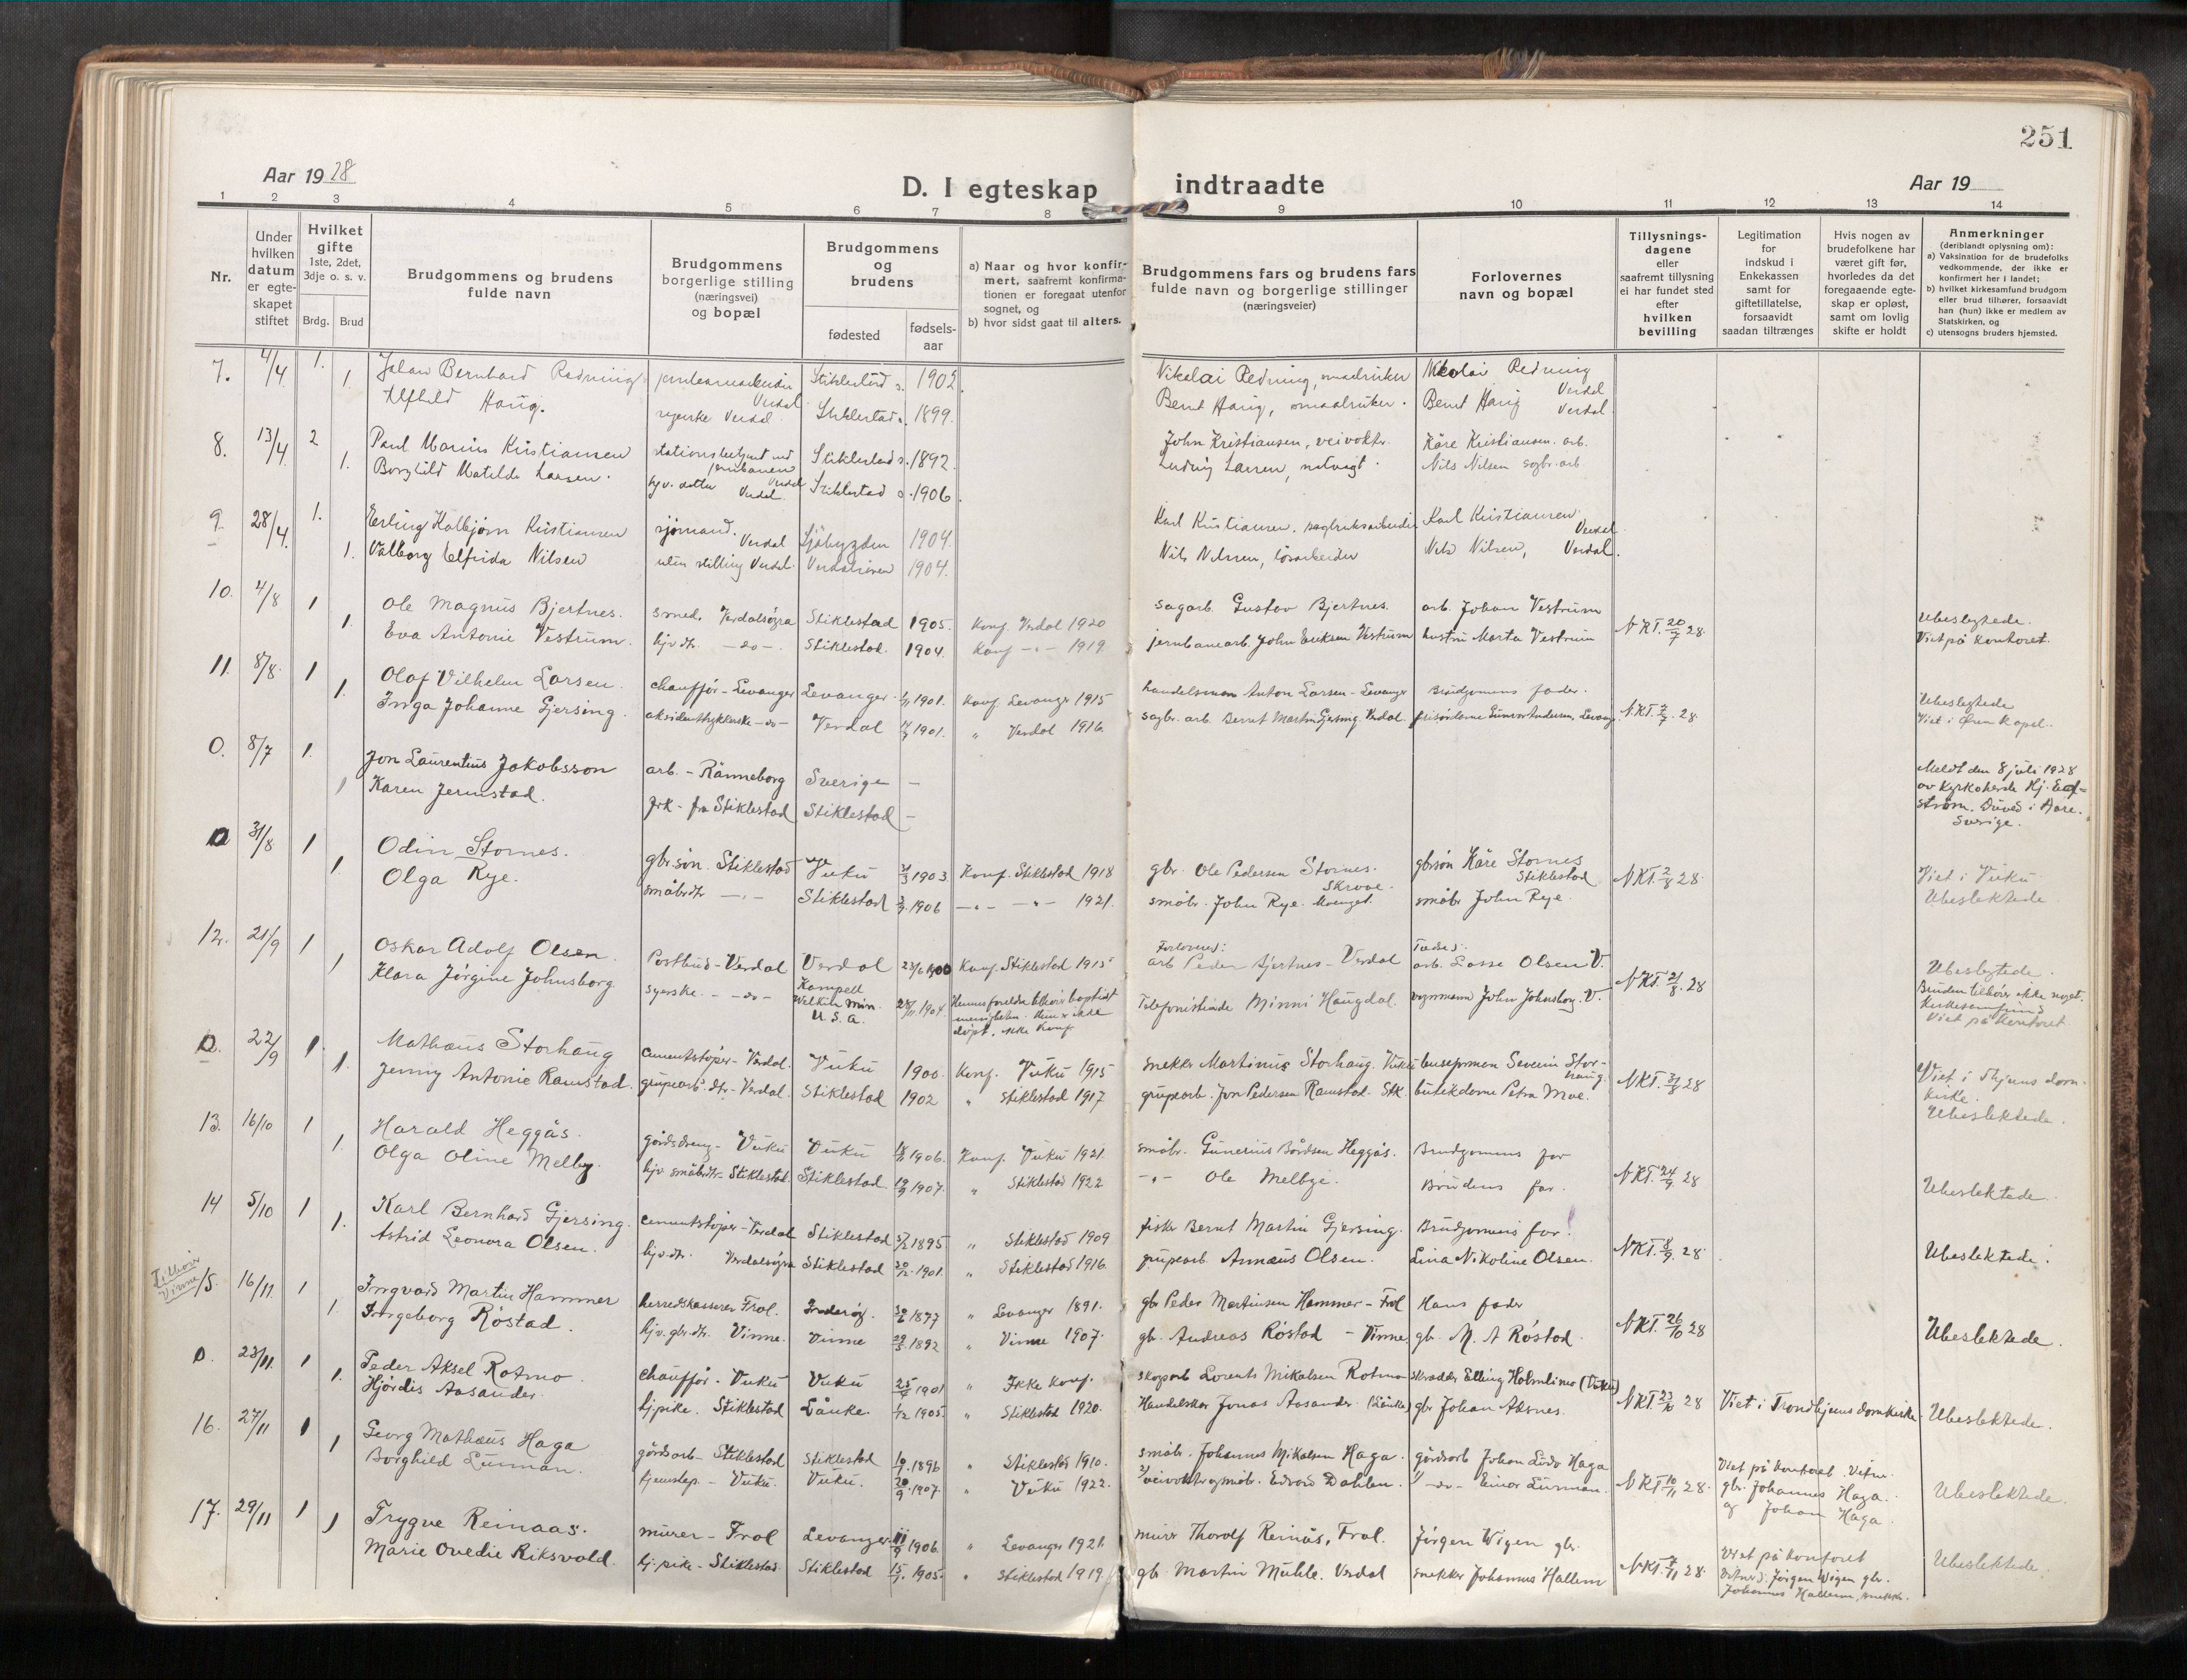 251
Aar 1928
D. I egteskap indtraadte
Aar 19
1 2 3 4 5 6 7 8 9 10 11 12 13 14
Nr.
Under hvilken datum er egteskapet stiftet
Hvilket gifte 1ste, 2det, 3dje o. s. v.
Brdg. Brud
Brudgommens og brudens fulde navn
Brudgommens borgerlige stilling (næringsvei) og bopæl
Brudgommens og brudens
fødested
fødselsaar
a) Naar og hvor konfirmert, saafremt konfirmationen er foregaat utenfor sognet, og
b) hvor sidst gaat til alters.
Brudgommens fars og brudens fars fulde navn og borgerlige stillinger (næringsveier)
Forlovernes navn og bopæl
Tillysningsdagene eller saafremt tillysning ei har fundet sted efter hvilken bevilling
Legitimation for indskud i Enkekassen samt for giftetillatelse, forsaavidt saadan tiltrænges
Hvis nogen av brudefolkene har været gift før, hvorledes da det foregaaende egteskap er opløst, samt om lovlig skifte er holdt
Anmerkninger
(deriblandt oplysning om):
a) Vaksination for de brudefolks vedkommende, der ikke er konfirmert her i landet;
b) hvilket kirkesamfund brudgom eller brud tilhører, forsaavidt han (hun) ikke er medlem av Statskirken, og
c) utensogns bruders hjemsted.
7. 4/4 1. Johan Bernhard Redning Verdal Stiklestad s. 1902. Nikolai Redning Nikolai Redning Verdal
1. Alfhild Haug. syerske Verdal. Stiklestad s. 1899. Bernt Haug Bernt Haug Verdal.
8. 13/4 2 Paul Marius Kristiansen stationsbetjent ved jernbanen Verdal Stiklestad s. 1892. John Kristiansen, veivokter. Kåre Kristiansen. arb.
1. Borghild Matilde Larsen. hjv. datter Verdal. Stiklestad s. 1906. Ludvig Larsen Nils Nilsen sagbr. arb
9. 28/4. 1. Erling Kolbjørn Kristiansen sjømand. Verdal Sjøbygden 1904. Karl Kristiansen. sagbruksarbeider Karl Kristiansen Verdal
1. Valborg Elfrida Nilsen uten stilling Verdal. Verdalsøren 1904. Nils Nilsen, løsarbeider Nils Nilsen, Verdal.
10. 4/8 1 Ole Magnus Bjertnes. smed. Verdalsøra Stiklestad 1905. Konf. Verdal 1920 sagarb. Gustav Bjertnes. arb. Johan Vestrum NKT. 20/7 28. Ubeslegtede.
1. Eva Antonie Vestrum. hjv. dtr. -do-. Stiklestad. 1904. Konf -"- 1919 jernbanearb. John Eriksen Vestrum hustru Marta Vestrum Viet på kontoret.
11. 8/8. 1 Olaf Vilhelm Larsen. chauffør - Levanger Levanger 1901. Konf. Levanger 1915 handelsmann Anton Larsen - Levanger Brudgomens fader. NKT. 28 Ubeslegtede
1. Inga Johanne Gjersing. -do- Verdal 1901. " Verdal 1916. sagbr. arb. Bernt Martin Gjersing. Verdal. Viet i Ørens Kapel.
0. 8/7 1. Jon Laurentius Jakobsson arb. - Ränneborg Sverige - Meldt den 8 juli 1928
1 Karen Jermstad. frk - fra Stiklestad Stiklestad - Sverige.
0 31/8 1 Odin Stornes. gbr. søn. Stiklestad Vuku 1903 Konf. Stiklestad 1918 gbr. Ole Pedersen Stornes. Skrove. gbrsøn Kåre Stornes Stiklestad NKT. 2/8 28. Viet i Vuku
1 Olga Rye. småbrdtr -"- Stiklestad 1906 -"- -"- 1921. småbr. John Rye. småbr John Rye. Ubeslektede
12. 21/9 1 Oskar Adolf Olsen. Postbud - Verdal Verdal 1900 Konf. Stiklestad 1915 Forlovere: arb Peder Bjertnes - Verdal Fædre: arb. Lasse Olsen V. NKT. 21/8. 28 Ubeslegtede.
1 Klara Jørgine Johnsborg syerske. - -do- U.S.A. 1904. Telefonistinde Minni Haugdal. John Johnsborg. V. Bruden tilhører ikke noget Kirkesamfund
døpt, ikke konf Viet på kontoret
0. 22/9 1. Mathæus Storhaug cementstøper - Verdal. Vuku 1900. Konf. Vuku 1915 snekker Martinus Storhaug. Vuku Severin Storhaug NKT. 28 Viet i Thjems domkirke.
1. Jenny Antonie Ramstad. grupearb. dtr. - Verdal. Stiklestad 1902 " Stiklestad 1917 grupearb. Jon Pedersen Ramstad. Stk. butikdame Petra Moe. Ubeslektede.
13. 16/10 1 Harald Heggås. gårdsdreng - Vuku Vuku 1906. Konf. Vuku 1921. småbr. Gunerius Bårdsen Heggås. Brudgomens far NKT. 24/9 28
1. Olga Oline Melby. hjv småbrdtr - Stiklestad. Stiklestad. 1907. " Stiklestad 1922 -"- Ole Melbye. Brudens far. Ubeslektede.
14 5/10 1 Karl Bernhard Gjersing. cementstøper - Verdal Stiklestad 1895 " Stiklestad 1909 fisker Bernt Martin Gjersing. Brudgomens far! NKT. 8/9. 28
1. Astrid Leonora Olsen. hjv. dtr. Verdalsøra Stiklestad 1901. " Stiklestad 1916. grupearb Annæus Olsen. Lina Nikoline Olsen. Ubeslektede.
Tilhører Vinne 15. 16/11. 1 Ingvard Martin Hammer herredskasserer Frol. Inderøy. 1877 " Levanger 1891. gbr Peder Martinsen Hammer - Frol Hans fader NKT. 26/10 28
1. Ingeborg Røstad. hjv. gbr. dtr. Vinne. Vinne 1892 " Vinne 1907. gbr. Andreas Røstad - Vinne. gbr. M. A Røstad. Ubeslektede.
0. 23/11. 1 Peder Aksel Rotmo chauffør. Vuku Vuku 25/4 1901 " Ikke konf. skogarb Lorents Mikalsen Rotmo skrædder Elling Holmlimo (Vuku) NKT 23/10 28 Viet i Trondhjems domkirke. Ubeslektede.
1. Hjørdis Aasander. hj. pike. Stiklestad Lånke. 1/12 1905. " Stiklestad 1920. Jonas Aasander. (Lånke) gbr Johan Aksnes.
16. 27/11 1 Georg Mathæus Haga gårdsarb - Stiklestad Stiklestad 1896 " Stiklestad 1910. småbr. Johannes Mikalsen Haga. gårdsarb Johan Ludv Haga NKT 10/11 28. Viet på kontoret. Vitner. gbr. Johannes Haga. og Johan Haga. Ubeslektede.
1 Borghild Lunman. - Vuku. Vuku. 20/9 1907. " Vuku 1922. Edvard Dahlen. -do- Einar Lunman.
17. 29/11 1 Trygve Reinaas. murer - Frol Levanger. 1906. " Levanger 1921. murer Thorolf Reinås, Frol. Jørgen Wigen gbr. NKT. 28. Viet på kontoret Ubeslektede.
1 Marie Ovedie Riksvold. hj. pike - Stiklestad Stiklestad 1905. " Stiklestad 1919. gbr. Martin Mühle. Verdal snekker Johannes Hallem Jørgen Wigen gbr. Johannes Hallem, snekk.